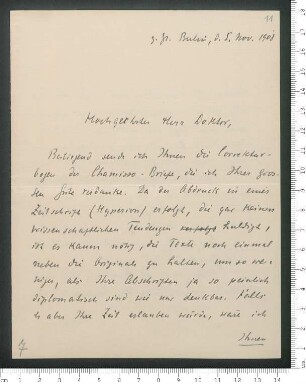 11
z. Zt. Berlin, d. 5. Nov. 1908
Hochgeehrter Herr Doktor,
Beiliegend sende ich Ihnen die Correctur-
bogen der Chamisso-Briefe, die ich Ihrer gros-
sen Güte verdanke. Da der Abdruck in einer
Zeitschrift (Hyperion) erfolgt, die gar keinen
wissenschaftlichen Tendenzen huldigt,
ist es kaum nötig, die Texte noch einmal
neben die Originale zu halten, um so we-
niger, als Ihre Abschriften ja so peinlich
diplomatisch sind wie nur denkbar. Falls
es aber Ihre Zeit erlauben würde, wäre ich
Ihnen